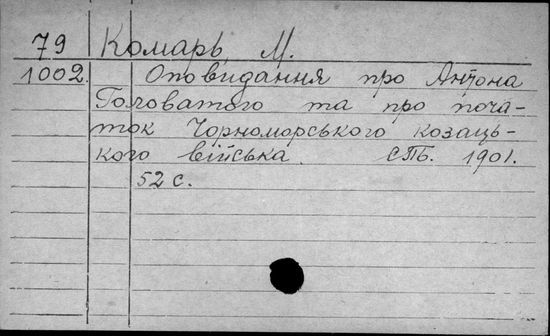 79 Комарь, М.
1002. Оповидання про Антона
Головатого та про поча-
ток Чорноморського козаць-
кого війська. СПб. 1901.
52 с.